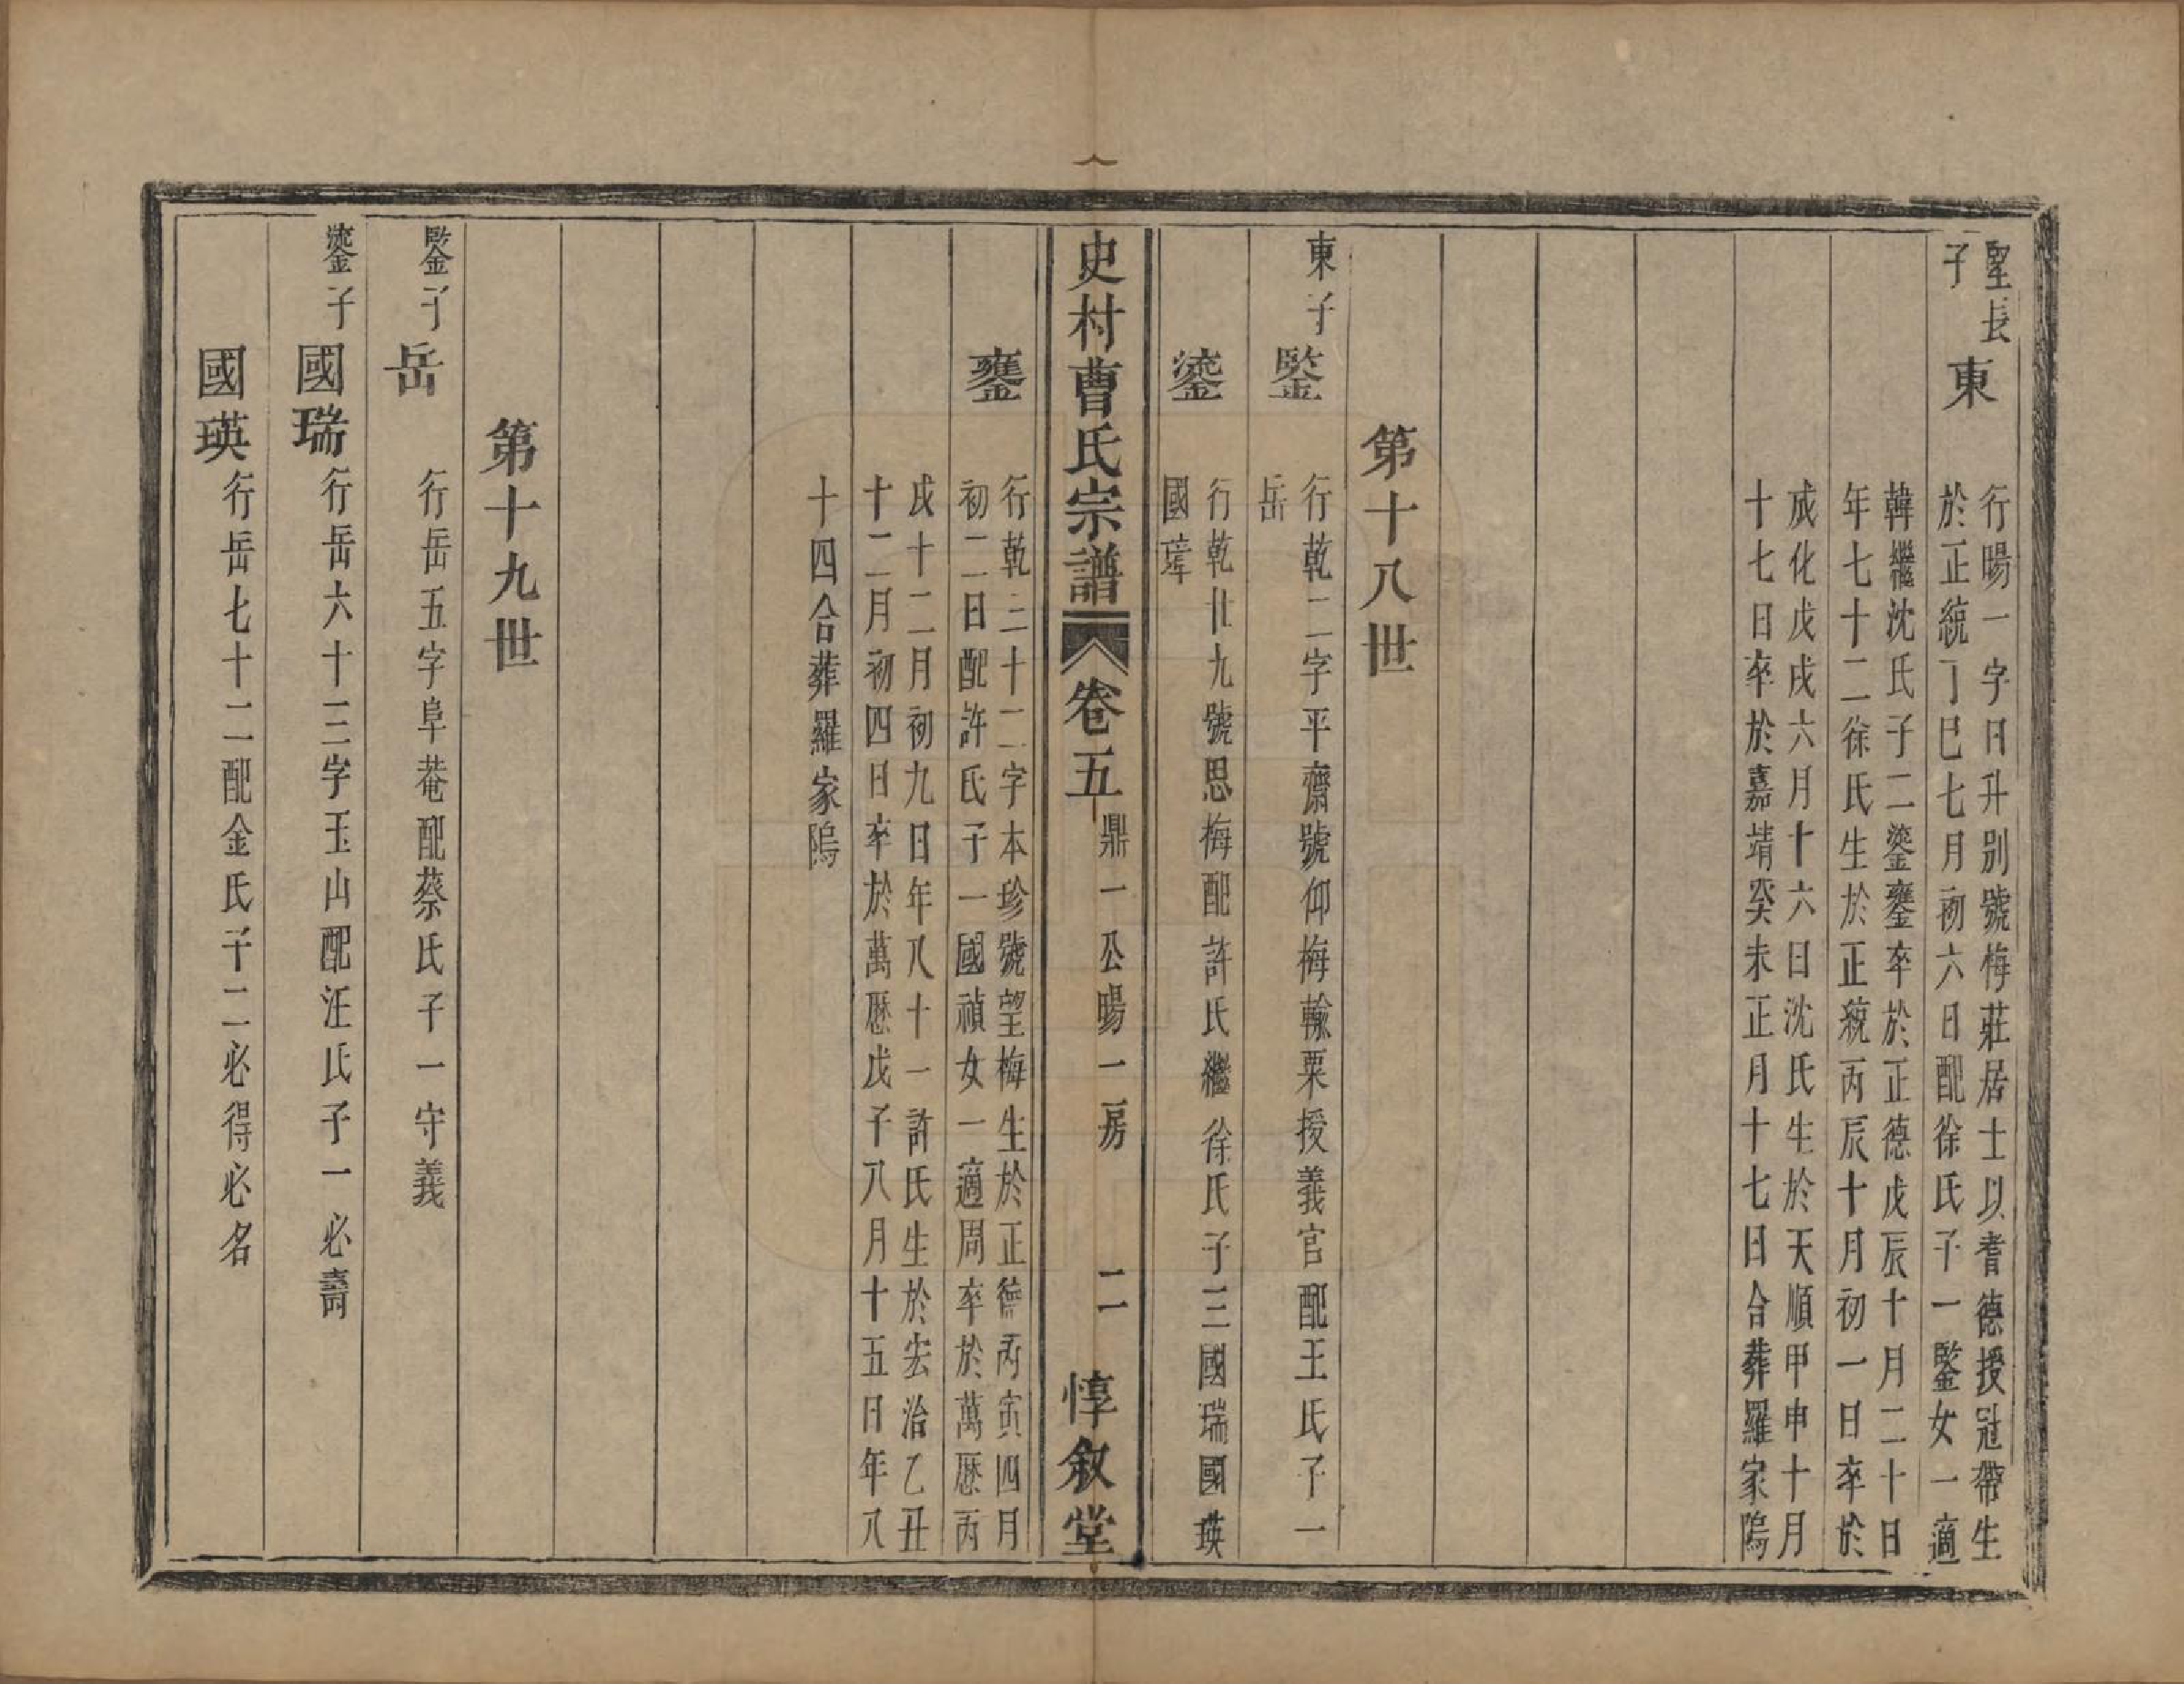 聖長
子
東
行暘一字日升別號梅莊居士以耆德授冠帶生
於正統丁巳七月初六日配徐氏子一鋻女一適
韓繼沈氏子二鎏䥸卒於正德戊辰十月二十日
年七十二徐氏生於正統丙辰十月初一日卒於
成化戊戌六月十六日沈氏生於天順甲申十月
十七日卒於嘉靖癸未正月十七日合葬羅家隖
第十八世
東子
鋻
行乾二字平齋號仰梅輸粟授義官配王氏子一
岳
鎏
行乾廿九號思梅配許氏繼徐氏子三國瑞國瑛
國瑋
史村曹氏宗譜
卷五
鼎一公暘一房
二
惇敘堂
䥸
行乾三十二字本珍號望梅生於正德丙寅四月
初二日配許氏子一國禎女一適周卒於萬歷丙
戌十二月初九日年八十一許氏生於宏治乙丑
十二月初四日卒於萬歷戊子八月十五日年八
十四合葬羅家隖
第十九世
鋻子
岳
行岳五字阜菴配蔡氏子一守義
鎏子
國瑞
行岳六十三字玉山配汪氏子一必壽
國瑛
行岳七十二配金氏子二必得必名